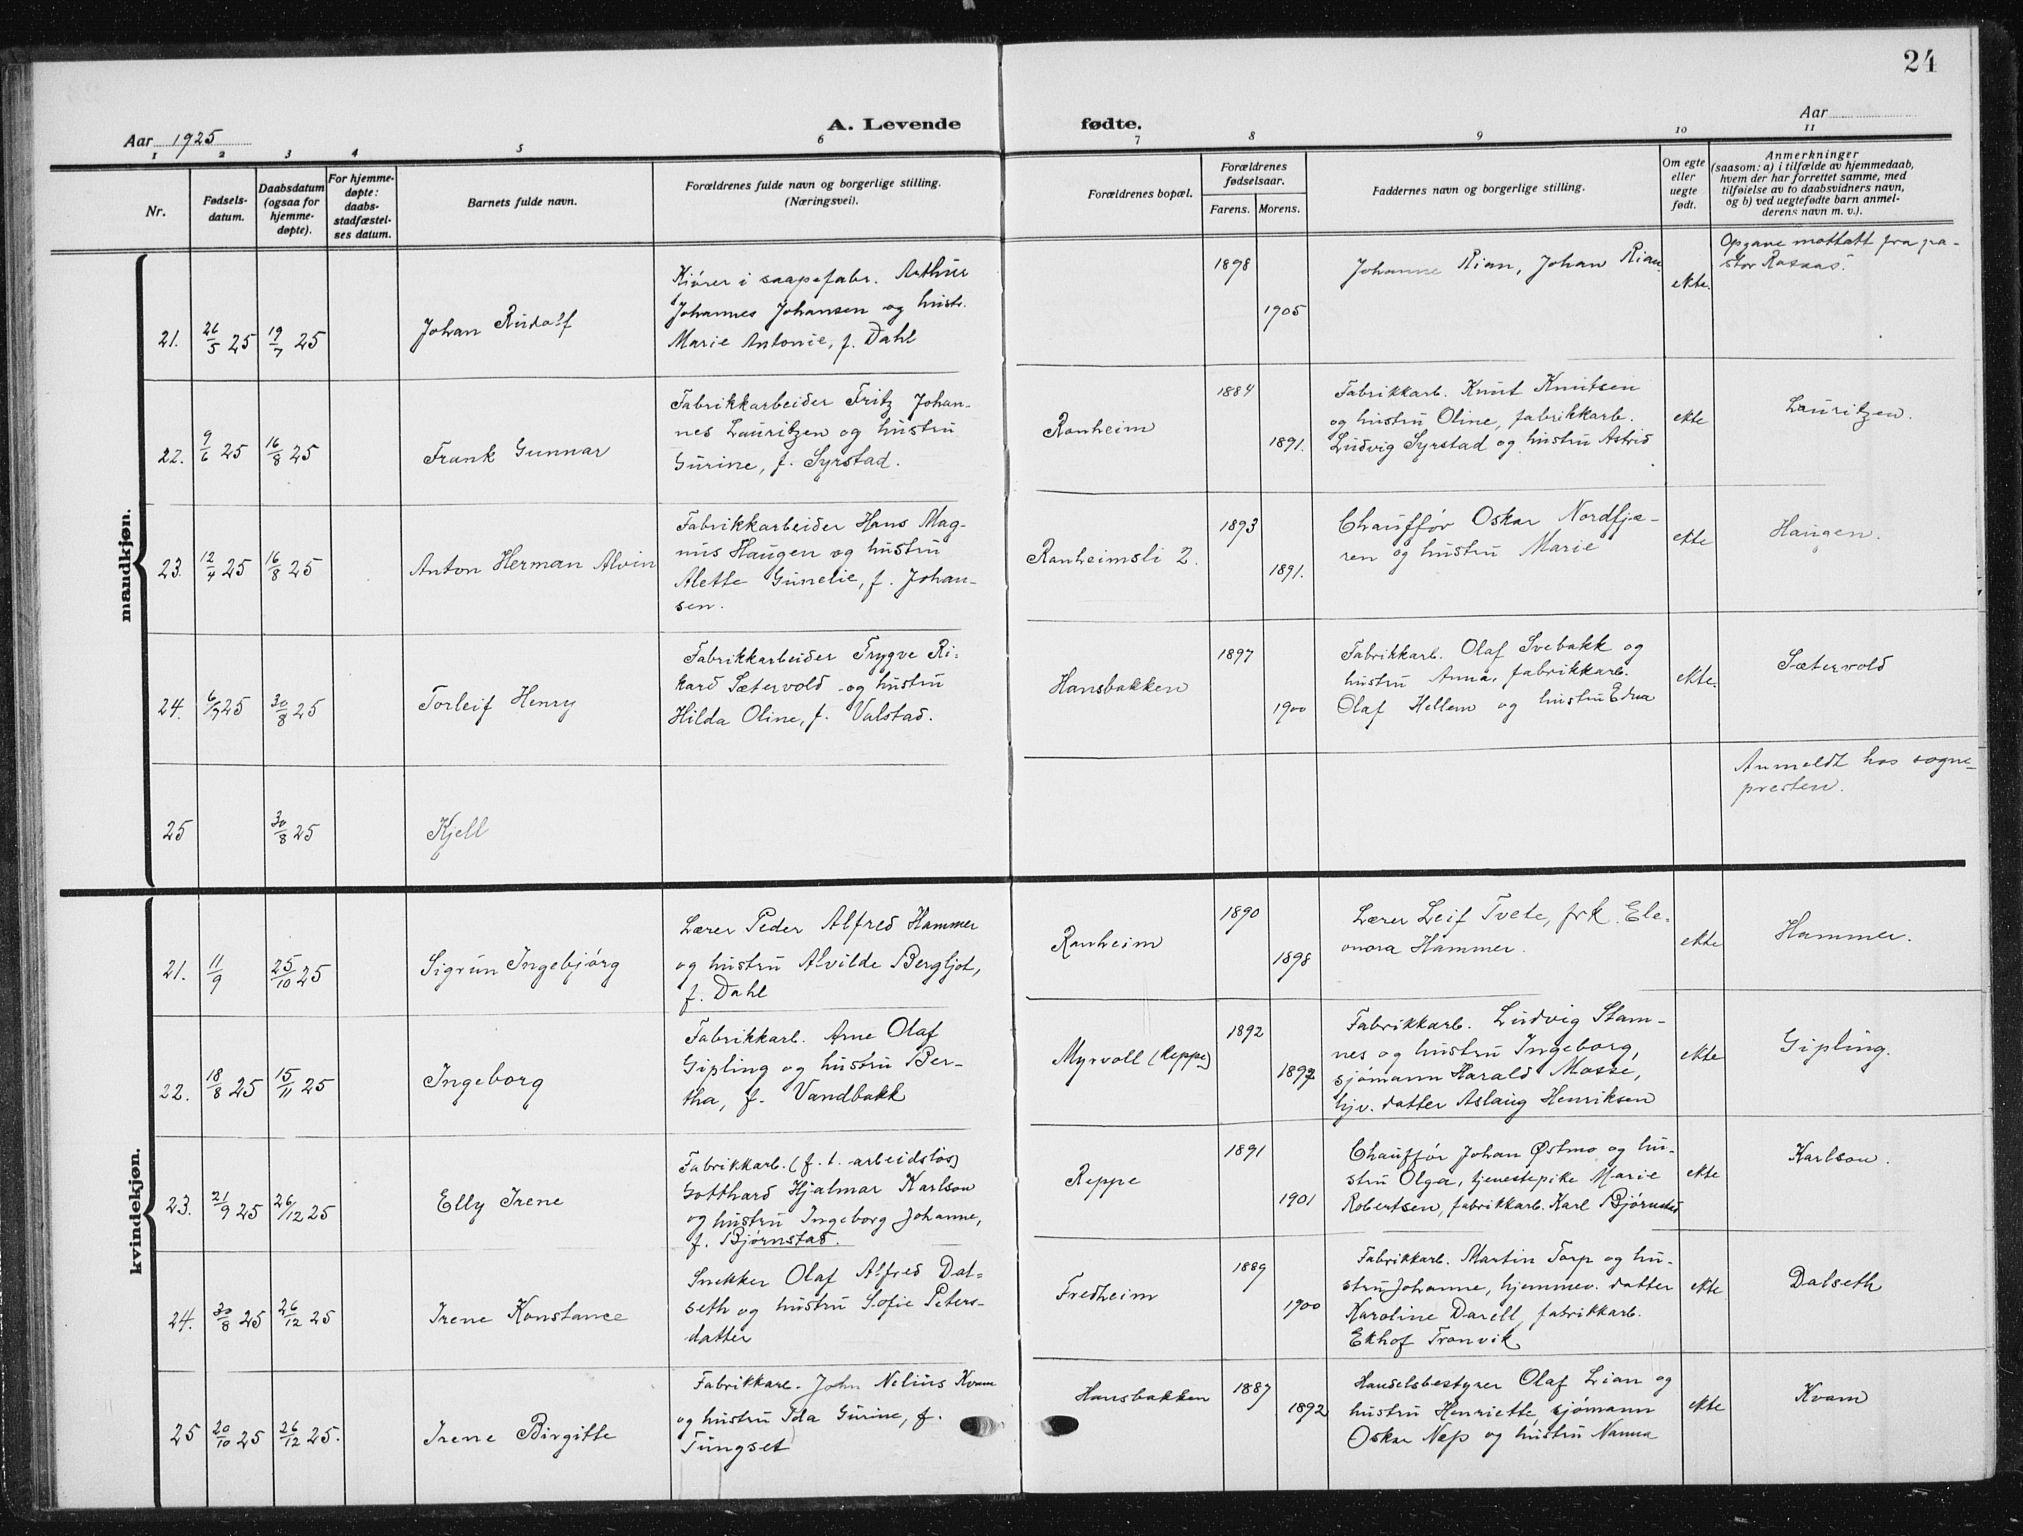 24
Aar 1925
A. Levende fødte.
Aar
1 2 3 4 5 6 7 8 9 10 11
Nr.
Fødsels-
datum.
Daabsdatum
(ogsaa for
hjemme-
døpte).
For hjemme-
døpte:
daabs-
stadfæstel-
ses datum.
Barnets fulde navn.
Forældrenes fulde navn og borgerlige stilling.
(Næringsvei).
Forældrenes bopæl.
Forældrenes
fødselsaar.
Farens. Morens.
Faddernes navn og borgerlige stilling.
Om egte
eller
uegte
født.
Anmerkninger
(saasom: a) i tilfælde av hjemmedaab,
hvem der har forrettet samme, med
tilføielse av to daabsvidners navn,
og b) ved uegtefødte barn anmel-
derens navn m. v.).
mandkjøn.
21. 26/5 25 19/7 25
Johan Rudolf
Kjører i saapefabr. Arthur
Johannes Johansen og hustr.
Marie Antonie, f. Dahl
1898
1905
Johanne Rian, Johan Rian.
ekte.
Opgave mottatt fra pa-
stor
22. 9/6 25 16/8 25
Frank Gunnar
Fabrikkarbeider Fritz Johan-
nes Lauritzen og hustru
Gurine, f. Syrstad.
Ranheim
1884
1891.
Fabrikkarb. Knut Knutsen
og hustru Oline, fabrikkarb.
Ludvig Syrstad og hustru Astrid
ekte
Lauritzen.
23. 12/4 25 16/8 25
Anton Herman Alvin
Fabrikkarbeider Hans Mag-
nus Haugen og hustru
Alette Gunelie, f. Johan-
sen.
Ranheimsli 2.
1893
1891.
Chauffør Oskar Nordfjæ-
ren og hustru Marie
ekte
Haugen.
24. 6/7 25 30/8 25
Torleif Henry
Fabrikkarbeider Trygve Ri-
kard Sætervold og hustru
Hilda Oline, f. Valstad.
Hansbakken
1897
1900
Fabrikkarb. Olaf Svebakk og
hustru Anna, fabrikkarb.
Olaf Hellem og hustru Edna
ekte.
Sætervold
25 30/8 25
Kjell
Anmeldt hos sogne-
presten.
kvindekjøn.
21. 11/9 25/10 25
Sigrun Ingebjørg
Lærer Peder Alfred Hammer
og hustru Alvilde Bergljot,
f. Dahl
Ranheim
1890
1898
Lærer Leif Tvete, frk. Ele-
onora Hammer.
ekte
Hammer.
22. 18/8 25 15/11 25
Ingeborg
Fabrikkarb. Arne Olaf
Gipling og hustru Ber-
tha, f. Vandbakk
Myrvoll (Reppe)
1892
1897
Fabrikkarb. Ludvig Stam-
nes og hustru Ingeborg,
sjømann Harald Mosse,
hjv. datter Aslaug Henriksen
ekte
Gipling.
23. 21/9 25 26/12 25
Elly Irene
Fabrikkarb. (f. t. arbeidsløs)
Gotthard Hjalmar Karlson
og hustru Ingeborg Johanne,
f. Bjørnstad.
Reppe
1891
1901
Chauffør Johan Østmo og hu-
stru Olga, tjenestepike Marie
Robertsen, fabrikkarb. Karl Bjørnstad
ekte
Karlson.
24. 30/8 25 26/12 25
Irene Konstance
Snekker Olaf Alfred Dal-
seth og hustru Sofie Peters-
datter
Fredheim
1889
1900
Fabrikkarb. Martin Torp og hu-
stru Johanne, hjemmev. datter
Karoline Darell, fabrikkarb.
Ekhof Tronvik
ekte
Dalseth
25 20/10 25 26/12 25.
Irene Birgitte
Fabrikkarb. John Nelius Kvam
og hustru Ida Gurine, f.
Tungset
Hansbakken
1887
1892
Handelsbestyrer Olaf Lian og
hustru Henriette, sjømann
Oskar Næp og hustru Nanna
ekte
Kvam